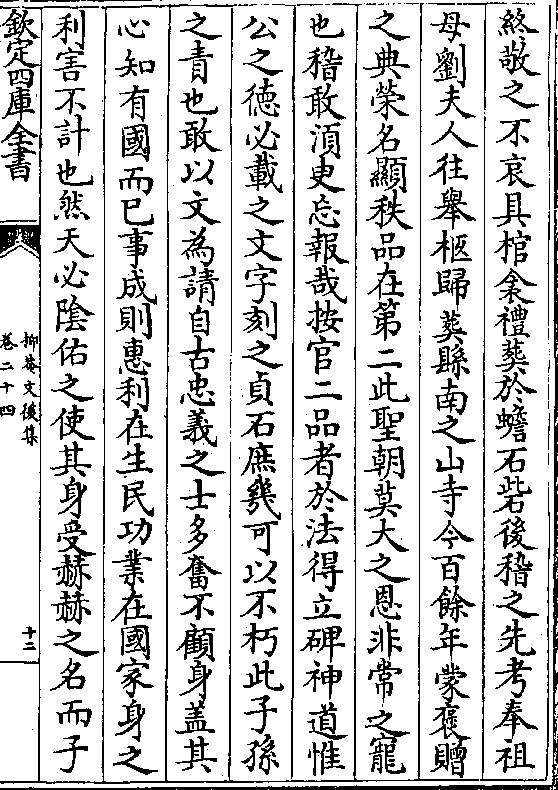 終敬之不哀具棺衾禮葬於蟾石砦後稽之先考奉祖
母劉夫人往舉柩歸葬縣南之山寺今百餘年蒙褒贈
之典榮名顯秩品在第二此聖朝莫大之恩非常之寵
也稽敢湏臾忘報哉按官二品者於法得立碑神道惟
公之德必載之文字刻之貞石庶㡬可以不朽此子孫
之責也敢以文為請自古忠義之士多奮不顧身盖其
心知有國而已事成則惠利在生民功業在國家身之
利害不計也然天必陰佑之使其身受赫赫之名而子
欽定四庫全書
抑菴文後集
卷二十四
十二